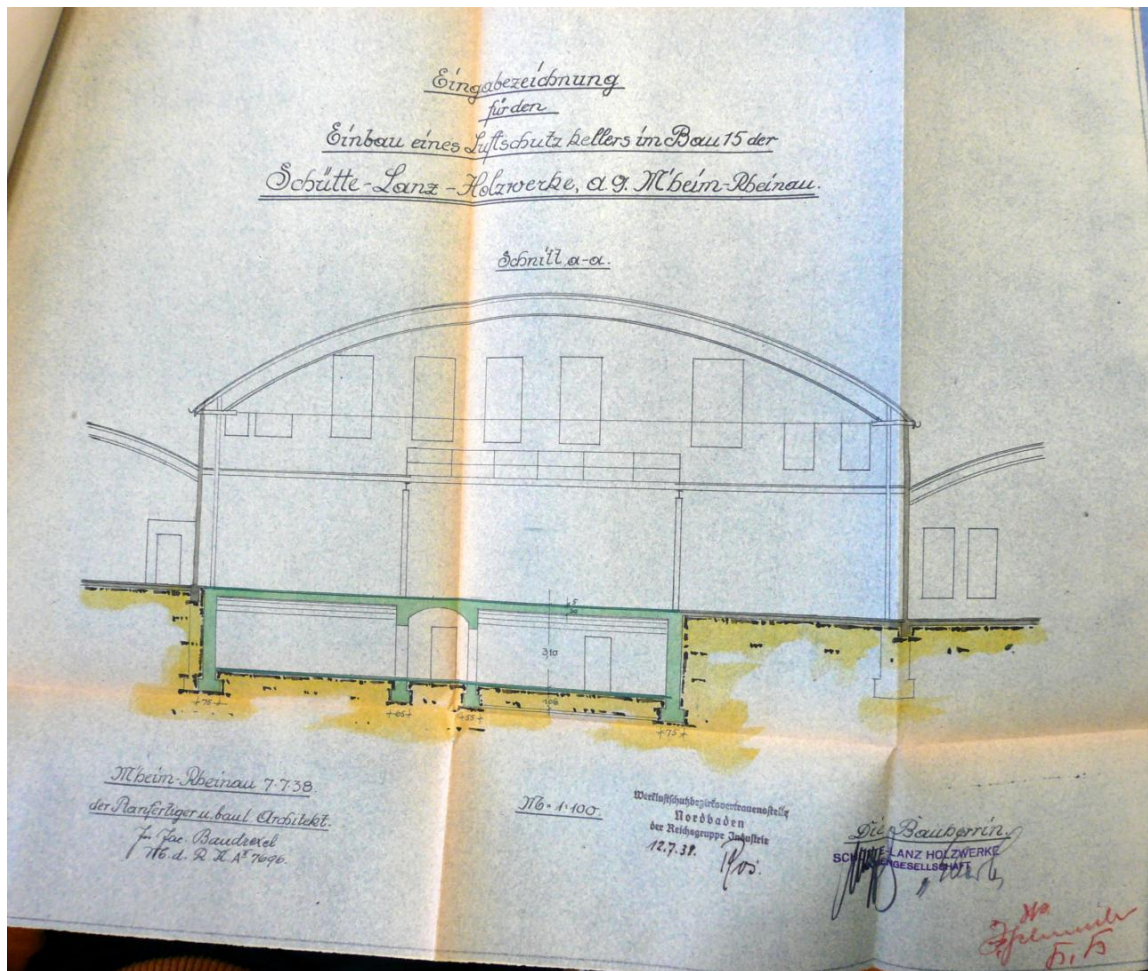 Eingabezeichnung
für den
Einbau eines Luftschutzkellers im Bau 15 der
Schütte-Lanz-Holzwerke, a.g. M'heim-Rheinau.
Schnitt a-a.
5
310
75
65
55
75
M'heim-Rheinau 7.7.38.
der Planfertiger u. baul. Architekt.
Jac. Baudrexel
M. d. R. K.
M = 1:100
Werkluftschutzbezirksvertrauensstelle
Nordbaden
der Reichsgruppe Industrie
12.7.38.
Die Bauherrin.
SCHÜTTE-LANZ HOLZWERKE
AKTIENGESELLSCHAFT